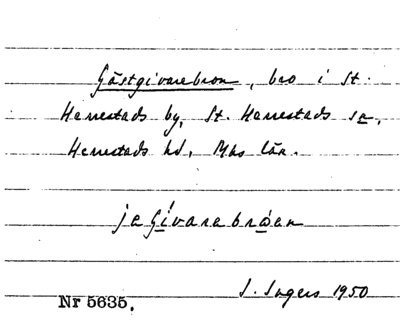 Gästgivarebron, bro i St.
Herrestads by, St. Herrestads sn,
Herrestads hd, Mhs län.
jeGívarebrøen
I. Ingers 1950
Nr 5635.